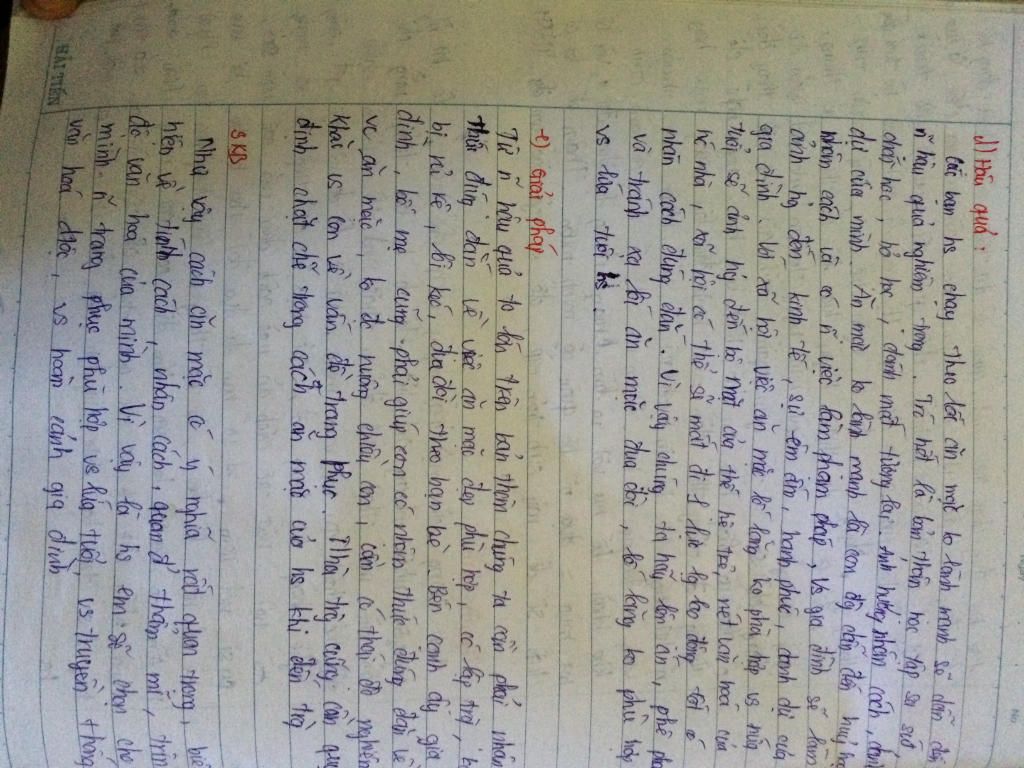 d) Hậu quả:
Các bạn hs chạy theo lối ăn mặc ko lành mạnh sẽ dẫn đến
n~ hậu quả nghiêm trọng. Trc hết là bản thân học tập sa sút
chán học, bỏ học, đánh mất tương lai. ảnh hưởng nhân cách, danh
dự của mình. Ăn mặc ko lành mạnh là con đg dẫn đến
nhân cách và có n~ việc làm phạm pháp, vs gia đình sẽ làm
ảnh hg đến kinh tế, sự êm ấm, hạnh phúc, danh dự của
gia đình. Với xã hội việc ăn mặc lố lăng ko phù hợp vs
tuổi sẽ ảnh hg đến bộ mặt của thế hệ trẻ, nét văn hoá của
nhà, xã hội có thể sẽ mất đi 1 lực lg lao động tốt có
nhân cách đúng đắn. Vì vậy chúng ta hãy lên án, phê
và tránh xa lối ăn mặc đua đòi, lố lăng ko phù hợp
vs lứa tuổi hs.
e) Giải pháp
Từ n~ hậu quả to lớn trên bản thân chúng ta cần phải nhận
thức đúng đắn về việc ăn mặc đẹp phù hợp, có lập trg,
bị rủ rê, lôi kéo, đua đòi theo bạn bè. Bên cạnh đó gia
đình, bố mẹ cũng phải giúp con có nhận thức đúng đắn về
vc ăn mặc, ko đc nuông chiều con, cần có thái độ nghiêm
khắc vs con về vấn đề trang phục. Nhà trg cũng cần quy
định chặt chẽ trong cách ăn mặc của hs khi đến trg
3. KB
Như vậy cách ăn mặc có ý nghĩa rất quan trọng,
hiện về tính cách, nhân cách, quan đ' thẩm mĩ, trình
độ văn hoá của mình. Vì vậy là hs em sẽ chọn cho
mình n~ trang phục phù hợp vs lứa tuổi, vs truyền thống
văn hoá dtộc, vs hoàn cảnh gia đình
HẢI TIẾN